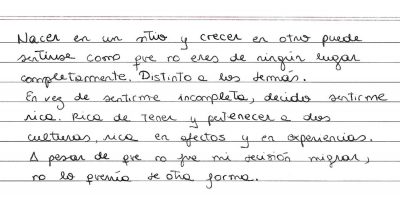 Nacer en un sitio y crecer en otro puede
sentirse como que no eres de ningún lugar
completamente. Distinto a los demás.
En vez de sentirme incompleta, decido sentirme
rica. Rica de tener y pertenecer a dos
culturas, rica en afectos y en experiencias.
A pesar de que no fue mi decisión migrar,
no lo querría de otra forma.